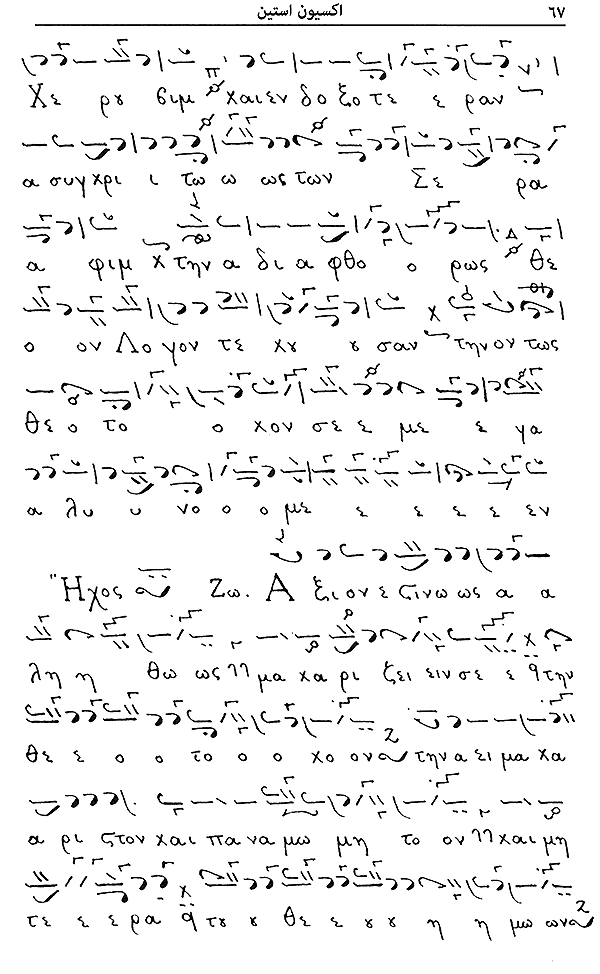 ٦٧ اكسيون استين
Χε ρυ βιμ χαι εν δο ξο τε ε ραν
α συγ χρι ι τω ω ως των Σε ρα
α φιμ χ την α δι α φθο ο ρως θε
ο ον Λο γον τε χυ υ σαν την ον τως
θε ο το ο χον σε ε με ε γα
α λυ υ νο ο ο με ε ε ε ε εν
Ἦχος Ζω. Α ξι ον ε ςιν ω ως α α
λη η θω ως μα χα ρι ζει ειν σε ε την
θε ε ο ο το ο ο χο ον την α ει μα χα
α ρι ςτον χαι πα να μω μη το ον χαι μη
τε ε ε ρα τυ υ θε ε υ υ η η μω ων